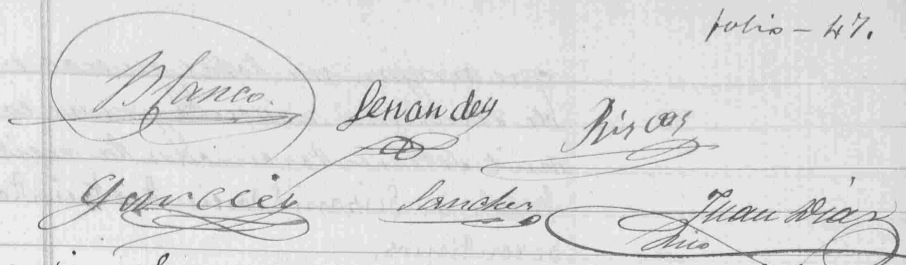 folio - 47.
Blanco. Fernandez Riscos
Garcia Sanchez Juan Diaz